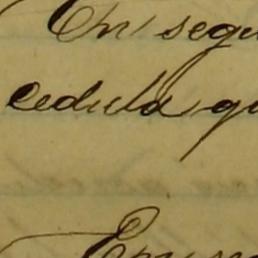 En segu
cedula qu